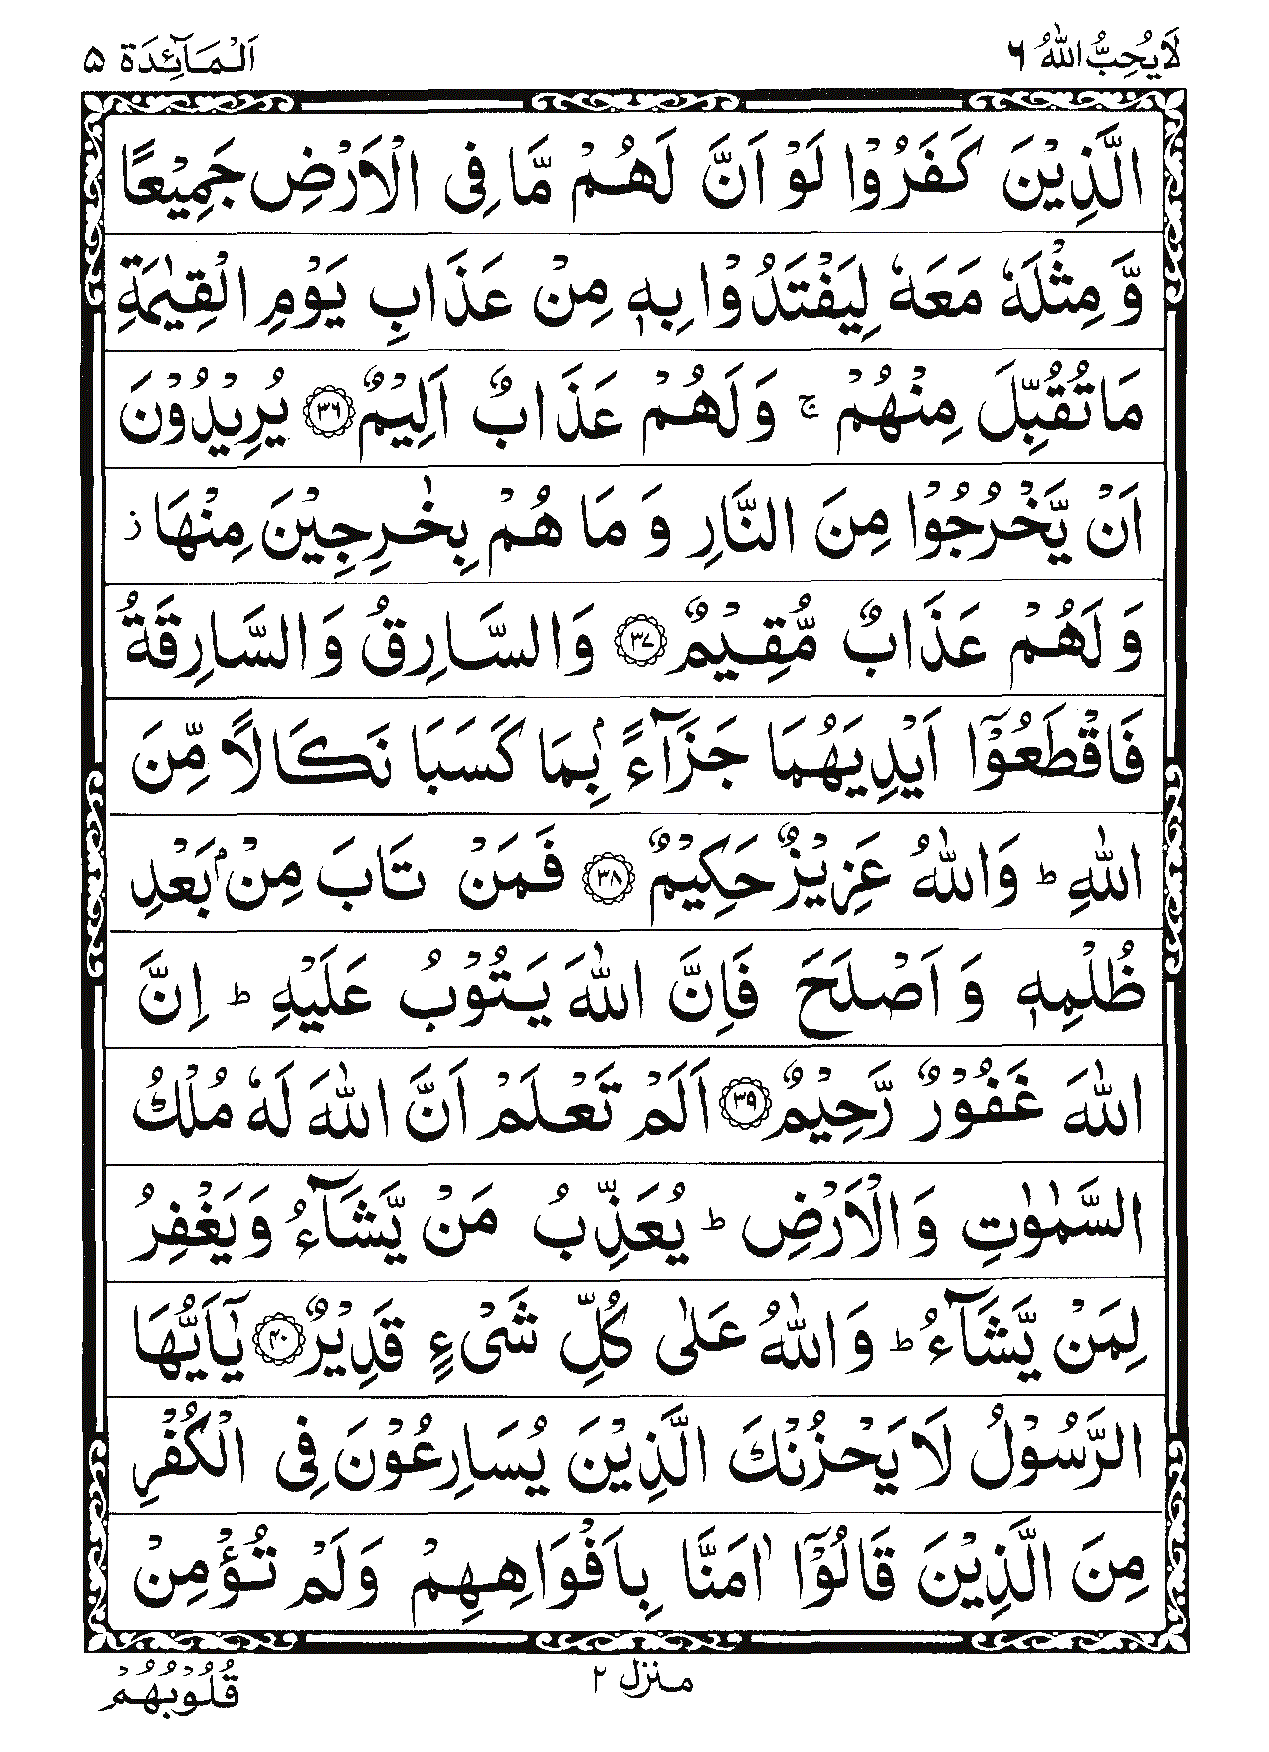 لَا يُحِبُّ اللّٰهُ ٦
اَلْمَآئِدَة ۵
الَّذِيْنَ كَفَرُوْا لَوْ اَنَّ لَهُمْ مَّا فِى الْاَرْضِ جَمِيْعًا
وَّ مِثْلَهٗ مَعَهٗ لِيَفْتَدُوْا بِهٖ مِنْ عَذَابِ يَوْمِ الْقِيٰمَةِ
مَا تُقُبِّلَ مِنْهُمْ ۚ وَلَهُمْ عَذَابٌ اَلِيْمٌ ﴿۳۶﴾ يُرِيْدُوْنَ
اَنْ يَّخْرُجُوْا مِنَ النَّارِ وَ مَا هُمْ بِخٰرِجِيْنَ مِنْهَا ز
وَ لَهُمْ عَذَابٌ مُّقِيْمٌ ﴿۳۷﴾ وَالسَّارِقُ وَ السَّارِقَةُ
فَاقْطَعُوْٓا اَيْدِيَهُمَا جَزَآءًۢ بِمَا كَسَبَا نَكَالًا مِّنَ
اللّٰهِ ؕ وَاللّٰهُ عَزِيْزٌ حَكِيْمٌ ﴿۳۸﴾ فَمَنْ تَابَ مِنْۢ بَعْدِ
ظُلْمِهٖ وَ اَصْلَحَ فَاِنَّ اللّٰهَ يَتُوْبُ عَلَيْهِ ؕ اِنَّ
اللّٰهَ غَفُوْرٌ رَّحِيْمٌ ﴿۳۹﴾ اَلَمْ تَعْلَمْ اَنَّ اللّٰهَ لَهٗ مُلْكُ
السَّمٰوٰتِ وَ الْاَرْضِ ؕ يُعَذِّبُ مَنْ يَّشَآءُ وَ يَغْفِرُ
لِمَنْ يَّشَآءُ ؕ وَ اللّٰهُ عَلٰى كُلِّ شَىْءٍ قَدِيْرٌ ﴿۴۰﴾ يٰۤاَيُّهَا
الرَّسُوْلُ لَا يَحْزُنْكَ الَّذِيْنَ يُسَارِعُوْنَ فِى الْكُفْرِ
مِنَ الَّذِيْنَ قَالُوْٓا اٰمَنَّا بِاَفْوَاهِهِمْ وَلَمْ تُؤْمِنْ
منزل ٢
قُلُوْبُهُمْ